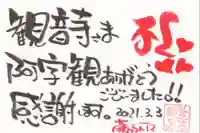 観音寺さま
阿字観ありがとう
ございました!!
感謝します。
2021.3.3